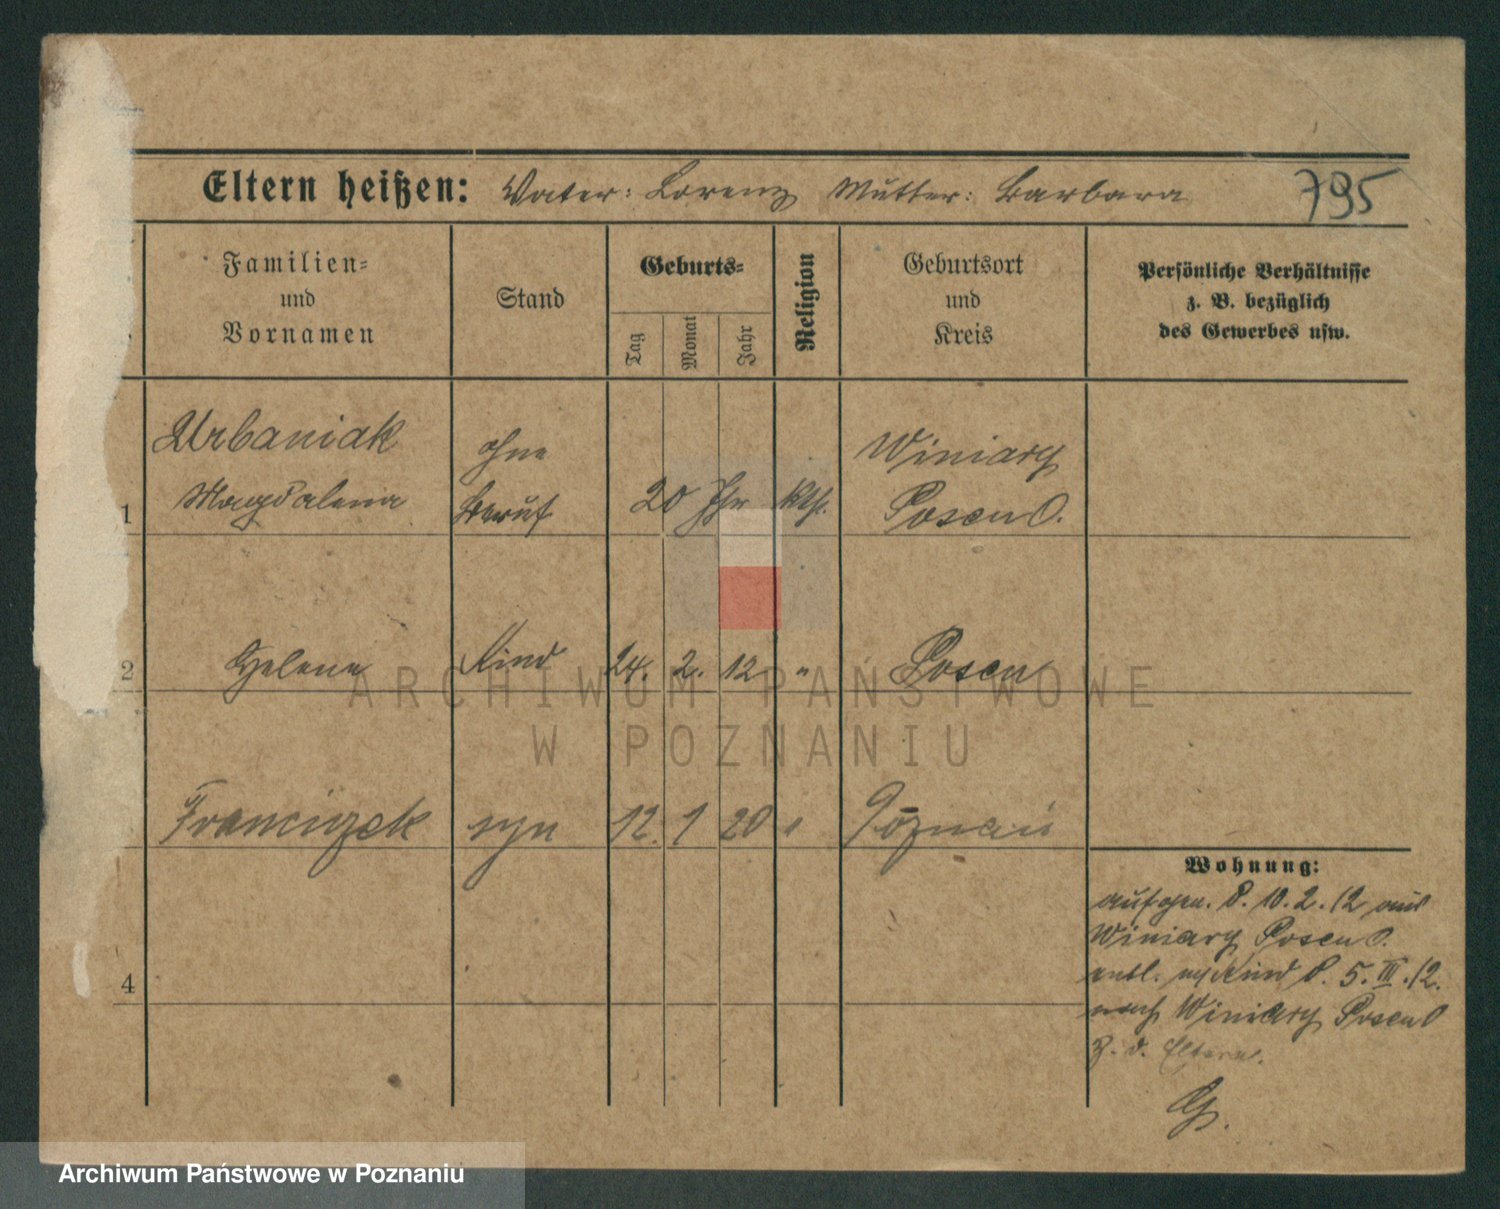 Eltern heißen: Vater: Lorenz Mutter: Barbara 795
Familien= und Vornamen
Stand
Geburts=
Tag Monat Jahr
Religion
Geburtsort und Kreis
Persönliche Verhältnisse
z. B. bezüglich
des Gewerbes usw.
Urbaniak ohne Winiary
1 Magdalena Beruf 20 Jhr kth. Posen O.
2 Helene Kind 24. 2. 12 " Posen
Franciszek syn 12. 1 20 " Poznań
Wohnung:
aufgen. d. 10. 2. 12 aus
Winiary Posen O.
entl. m/Kind d. 5. III. 12.
4
nach Winiary Posen O
z. d. Eltern.
ARCHIWUM PAŃSTWOWE
W POZNANIU
Archiwum Państwowe w Poznaniu